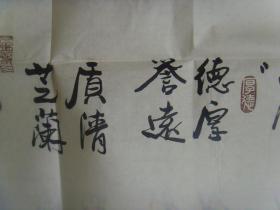 德厚
誉遠
质清
芝蘭